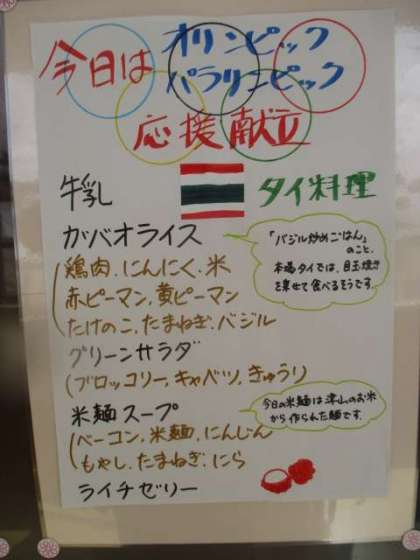 今日は オリンピック
パラリンピック
応援献立
牛乳
タイ料理
ガパオライス
「バジル炒めごはん」
のこと。
本場タイでは、目玉焼き
を乗せて食べるそうです。
(鶏肉、にんにく、米
赤ピーマン、黄ピーマン
たけのこ、たまねぎ、バジル
グリーンサラダ
(ブロッコリー、キャベツ、きゅうり
米麺スープ
今日の米麺は津山のお米
から作られた麺です。
(ベーコン、米麺、にんじん
もやし、たまねぎ、にら
ライチゼリー